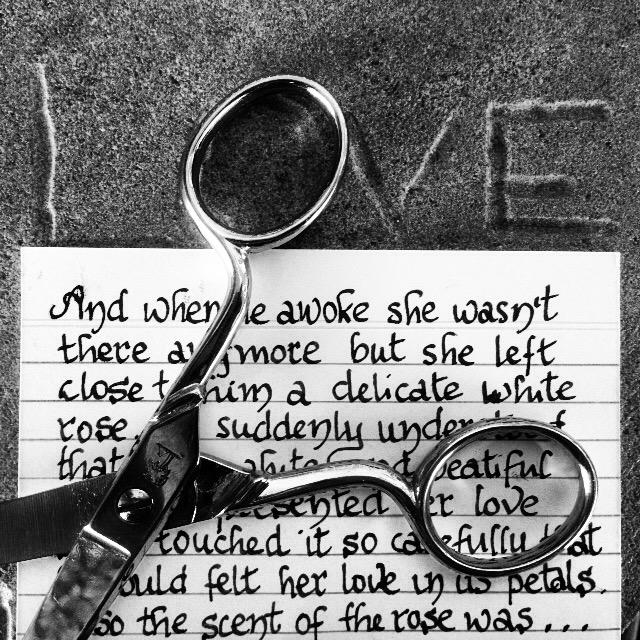 LOVE
And when he awoke she wasn't
there anymore but she left
close to him a delicate white
rose. suddenly understood
that white and beatiful
presented her love
touched it so carefully that
could felt her love in its petals.
so the scent of the rose was ...